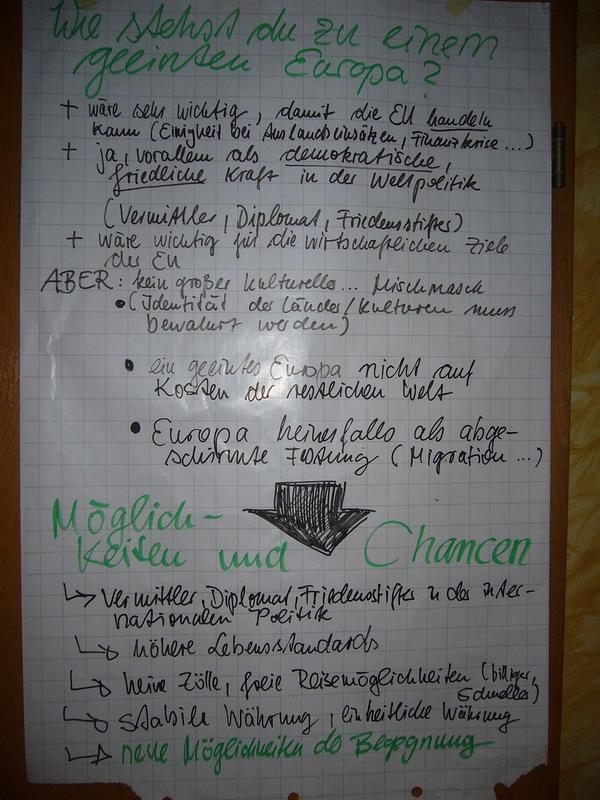 Wie stehst du zu einem
geeinten Europa?
+ wäre sehr wichtig, damit die EU handeln
kann (Einigkeit bei Auslandseinsätzen, Finanzkrise...)
+ ja, vorallem als demokratische,
friedliche Kraft in der Weltpolitik
(Vermittler, Diplomat, Friedensstifter)
+ wäre wichtig für die wirtschaftlichen Ziele
der EU
ABER: kein großer kultureller... Mischmasch
• (Identität der Länder/Kulturen muss
bewahrt werden)
• ein geeintes Europa nicht auf
Kosten der restlichen Welt
• Europa keinesfalls als abge-
schirmte Festung (Migration...)
Möglich-
keiten und Chancen
↳ Vermittler, Diplomat, Friedensstifter in der inter-
nationalen Politik
↳ höhere Lebensstandards
↳ keine Zölle, freie Reisemöglichkeiten (billiger,
schneller)
↳ stabile Währung, einheitliche Währung
↳ neue Möglichkeiten der Begegnung